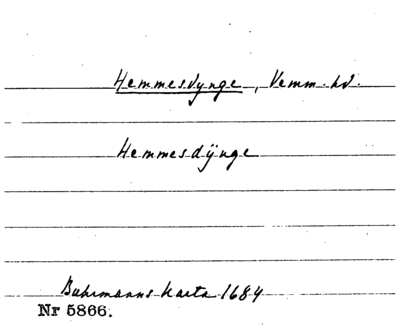 Hemmesdynge, Vemm. hd.
Hemmesdÿnge
Buhrmanns karta 1684
Nr 5866.